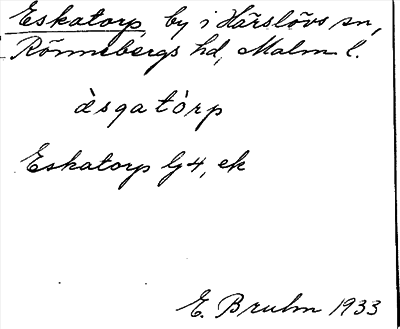 Eskatorp, by i Härslövs sn,
Rönnebergs hd, Malm. l.
àsgatòrp
Eskatorp Lj 4, ek
E. Bruhn 1933